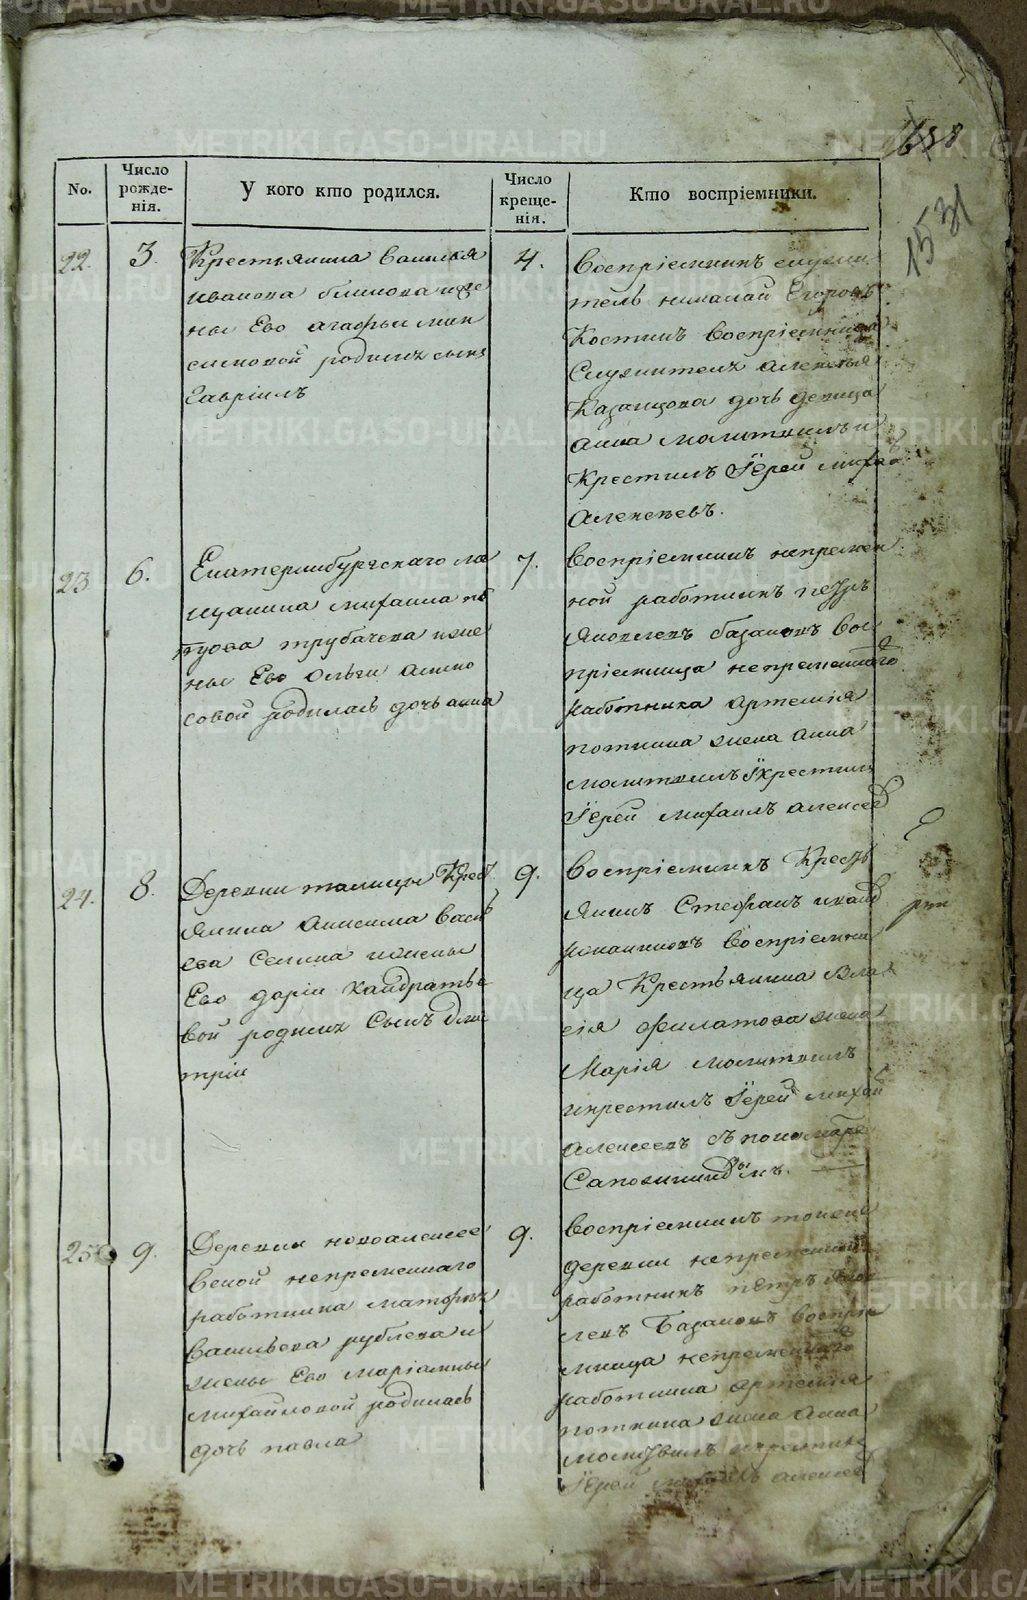 688
1531
No.
Число рожденія.
У кого кто родился.
Число крещенія.
Кто воспріемники.
22.
3.
Крестьянина Василья
Иванова блинова иже
ны Его агафьи мак
симовой родился сынъ
Гавріилъ
4.
Воспріемникъ служи
тель николай Егоровъ
Костинъ воспріемница
Служителя алексѣя
Казанцова дочь девица
анна молитвилъ и
Крестилъ Іерей михаи
Алексѣевъ.
23
6.
Екатеринбургскаго ма
щанина михаила
трубачева иже
ны Его ольги
совой родилась дочь анна
7.
Воспріемникъ непремен
ной работникъ петръ
Яковлевъ базановъ вос
пріемница непременнаго
работника артемія
поткина жена анна
молитвилъ Ікрестилъ
Іерей михаилъ алексеев
24.
8.
Деревни талицы Крест
янина анисима васил
ева Селина ижены
Его даріи кандратье
вой родился Сынъ дми
трій
9.
воспріемникъ Крест
янинъ Стефанъ
воспріемни
ца Крестьянина Вла
сія филатова жена
Марія молитвилъ
икрестилъ Іерей михаи
алексеевъ съ пономаре
Сапожниковымъ.
25
9.
Деревни новоалексее
вской непременнаго
работника матфея
васильева рублева и
жены Его маріамны
михайловой родилась
дочь павла
9.
воспріемникъ тойже
деревни непременной
работникъ петръ яков
левъ Базановъ воспріе
мница непременнаго
работника артемія
поткина жена анна
молитвилъ икрестилъ
Іерей михаилъ алексеев
METRIKI.GASO-URAL.RU